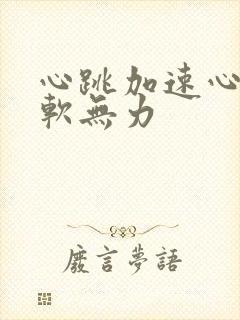 心跳加速心
軟無力
廢言夢語